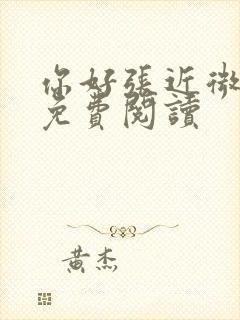 你好張近微
免費閱讀
黃杰